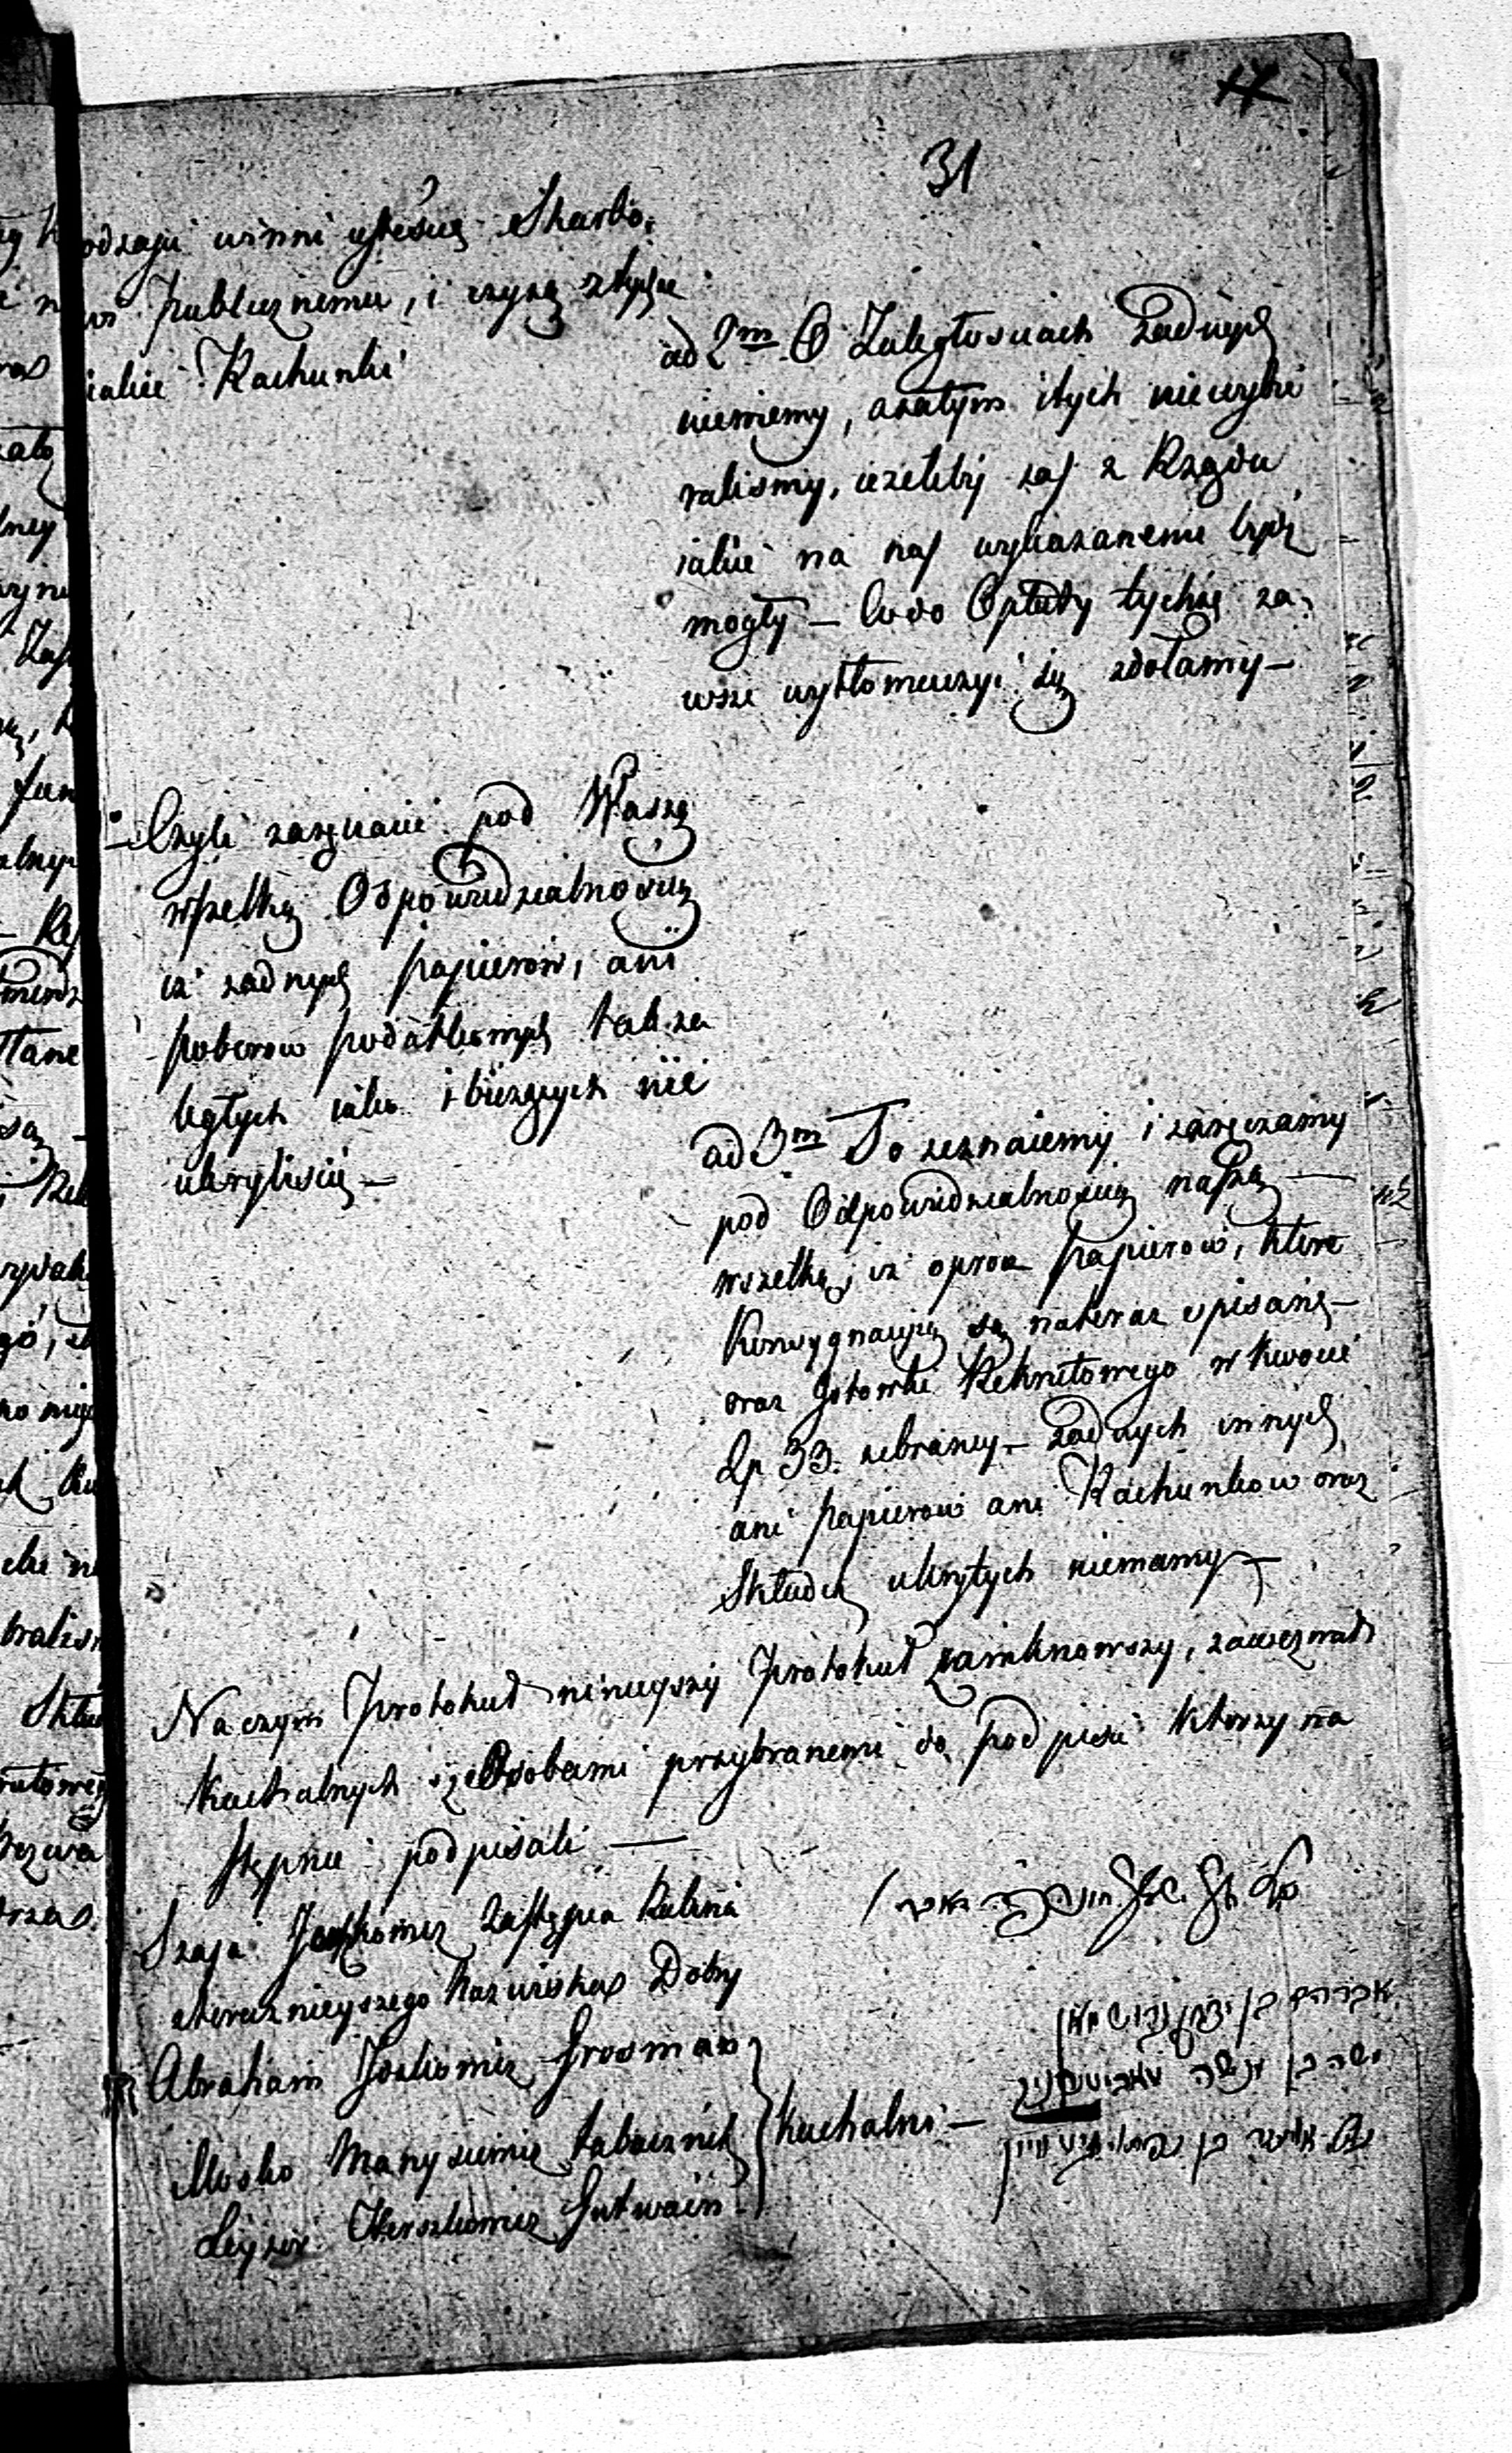 17
31
odzaju winni iesteście Skarbo,
wi publicznemu, i czyią ztąże
iakie Rachunki
ad 2m O Zaległościach żadnych
niewiemy, azatym i tych niewybie
raliśmy, ieżeliby zaś z Rządu
iakie na nas wykazanemi bydź
mogły — Co do Opłaty tychże za,
wsze wytłomaczyć się zdołamy —
— Czyli zaręczacie pod Waszą
wszelką Odpowiedzialnością
iż żadnych papierów, ani
poborow podatkowych tak za
ległych iako i bieżących nie
ukryliście —
ad 3m To zeznaiemy i zaręczamy
pod Odpowiedzialnością naszą —
wszelką, iż oprocz papierow, które
Konsygnacyią są nateraz spisane —
oraz gotowki Rekrutowego w kwocie
Zp 33. zebraney — żadnych innych
ani papierow ani Rachunkow oraz
Składek ukrytych niemamy —
Na czym Protokuł ninieyszy Protokuł zamknowszy, zawezwał
Kachalnych z Osobami przybranemi do podpisu którzy na
stępnie podpisali —
Szaja Joskowicz Zastępca Rabina
teraznieyszego Nazwiskas Dobry
Abraham Joskowicz Grosman
Mosko Manysiewicz Tabacznik
Leyzor Herszkowicz Gutwain
Kachalni —
אברהם בן יצחק גרוסמאן
משה בן מנשה טאביטשניק
אליעזר בן נפתלי הירץ